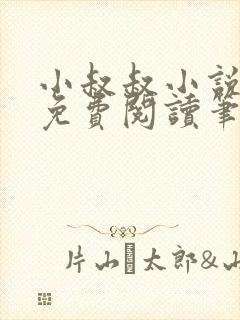 小叔叔小說
免費閱讀筆
片山 太郎&山